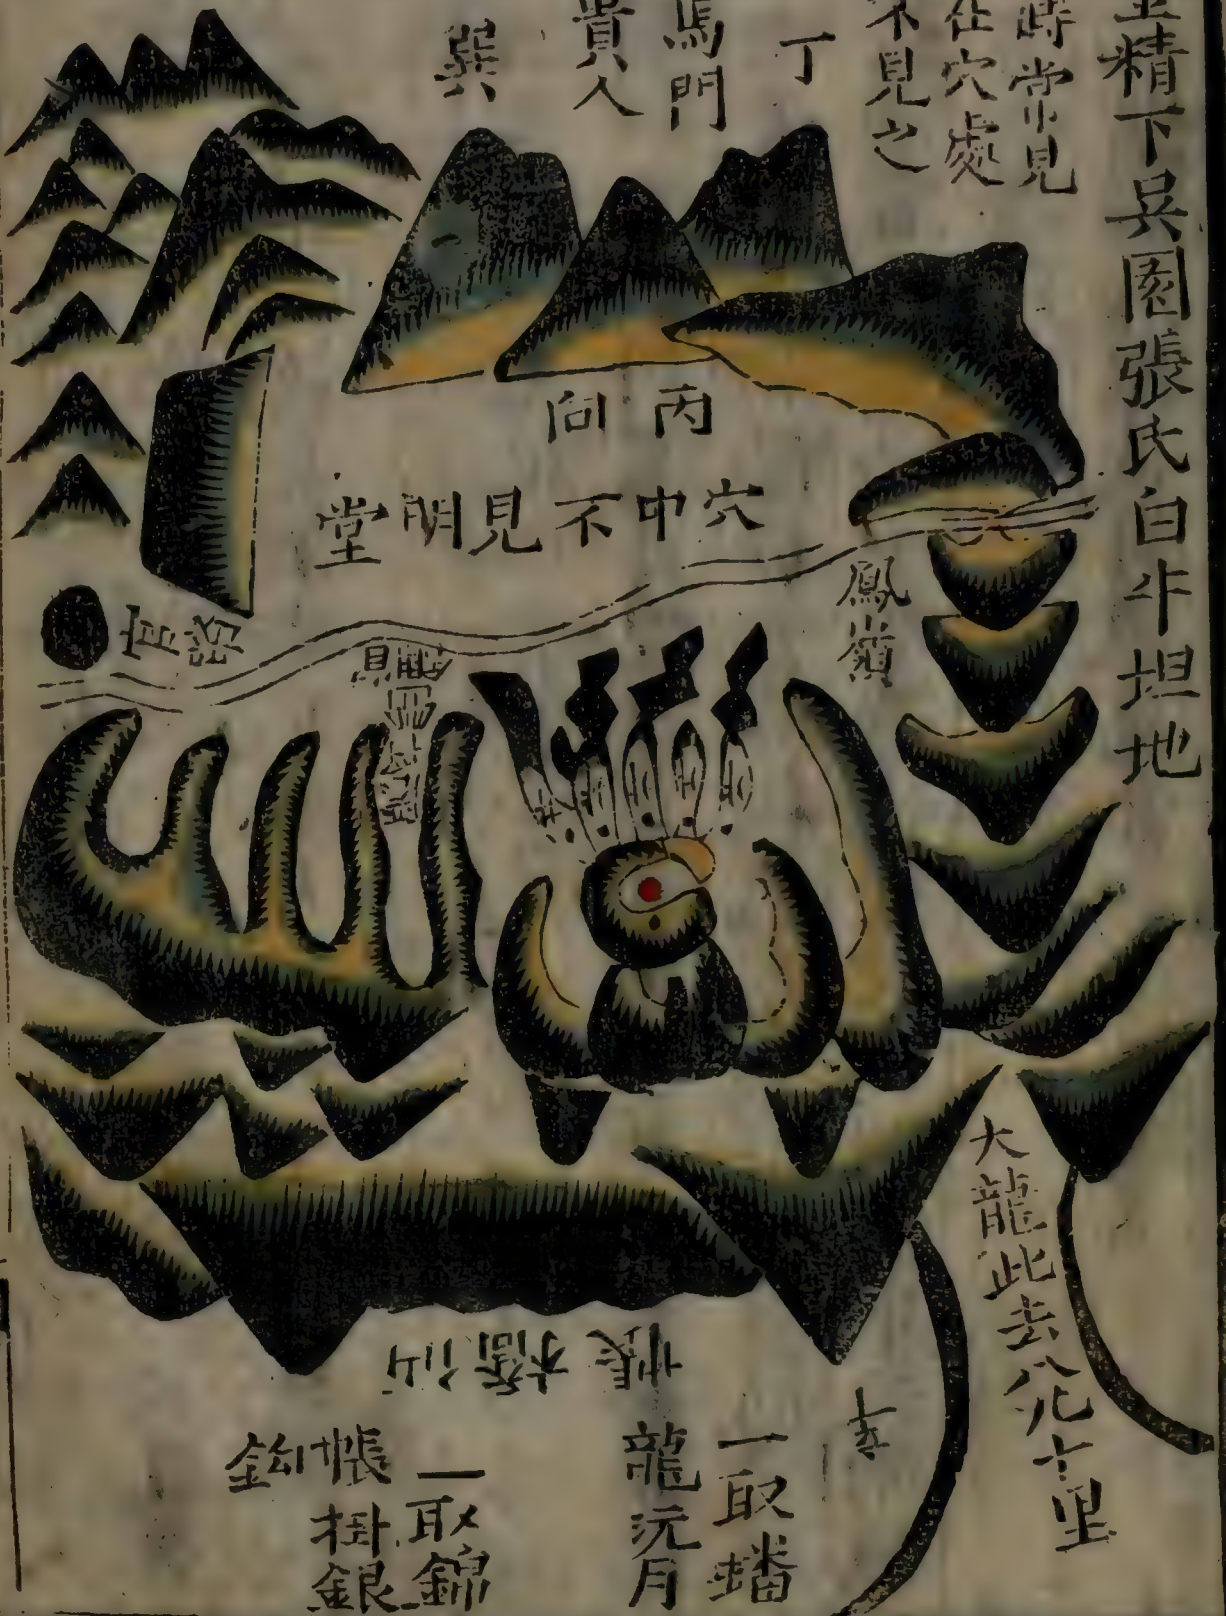 精下吳園張氏白牛坦地
常見
在穴處
不見之
丁
馬門
貴人
巽
丙向
穴中不見明堂
鳳嶺
大龍此去八九十里
帳
仙橋
辛
一取蟠
龍沅月
一取錦
帳掛銀
鈎